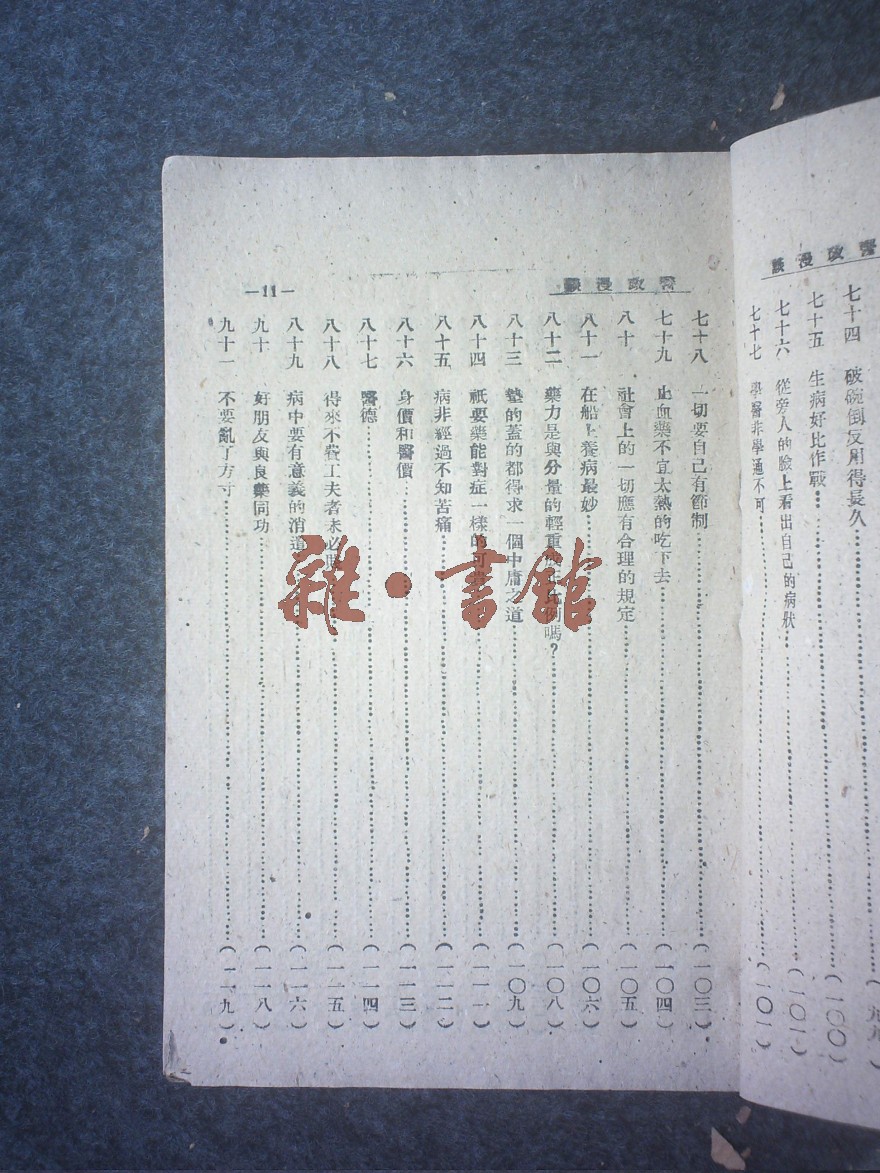 談漫政醫
七十四 破碗倒反用得長久……(九九)
七十五 生病好比作戰……(一〇〇)
七十六 從旁人的臉上看出自己的病狀……(一〇一)
七十七 學醫非學通不可……(一〇一)
談漫政醫
—11—
七十八 一切要自己有節制……(一〇三)
七十九 止血藥不宜太熱的吃下去……(一〇四)
八十 社會上的一切應有合理的規定……(一〇五)
八十一 在船上養病最妙……(一〇六)
八十二 藥力是與分量的輕重成正比例嗎?……(一〇八)
八十三 墊的蓋的都得求一個中庸之道……(一〇九)
八十四 祇要藥能對症一樣的可……(一一一)
八十五 病非經過不知苦痛……(一一二)
八十六 身價和醫價……(一一三)
八十七 醫德……(一一四)
八十八 得來不費工夫者未必……(一一五)
八十九 病中要有意義的消遣……(一一六)
九十 好朋友與良藥同功……(一一八)
九十一 不要亂了方寸……(一一九)
雜·書館